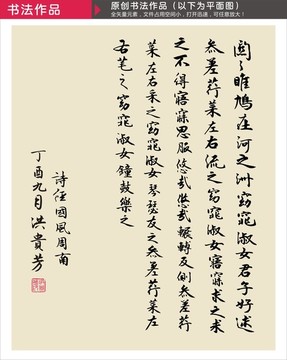 书法作品
原创书法作品（以下为平面图）
全矢量元素，文件占用空间小，打开迅速，可任意放大！
關〻雎鳩在河之洲窈窕淑女君子好逑
參差荇菜左右流之窈窕淑女寤寐求之求
之不得寤寐思服悠哉悠哉輾轉反側參差荇
菜左右采之窈窕淑女琴瑟友之參差荇菜左
右芼之窈窕淑女鐘鼓樂之
詩經國風周南
丁酉九月洪貴芳